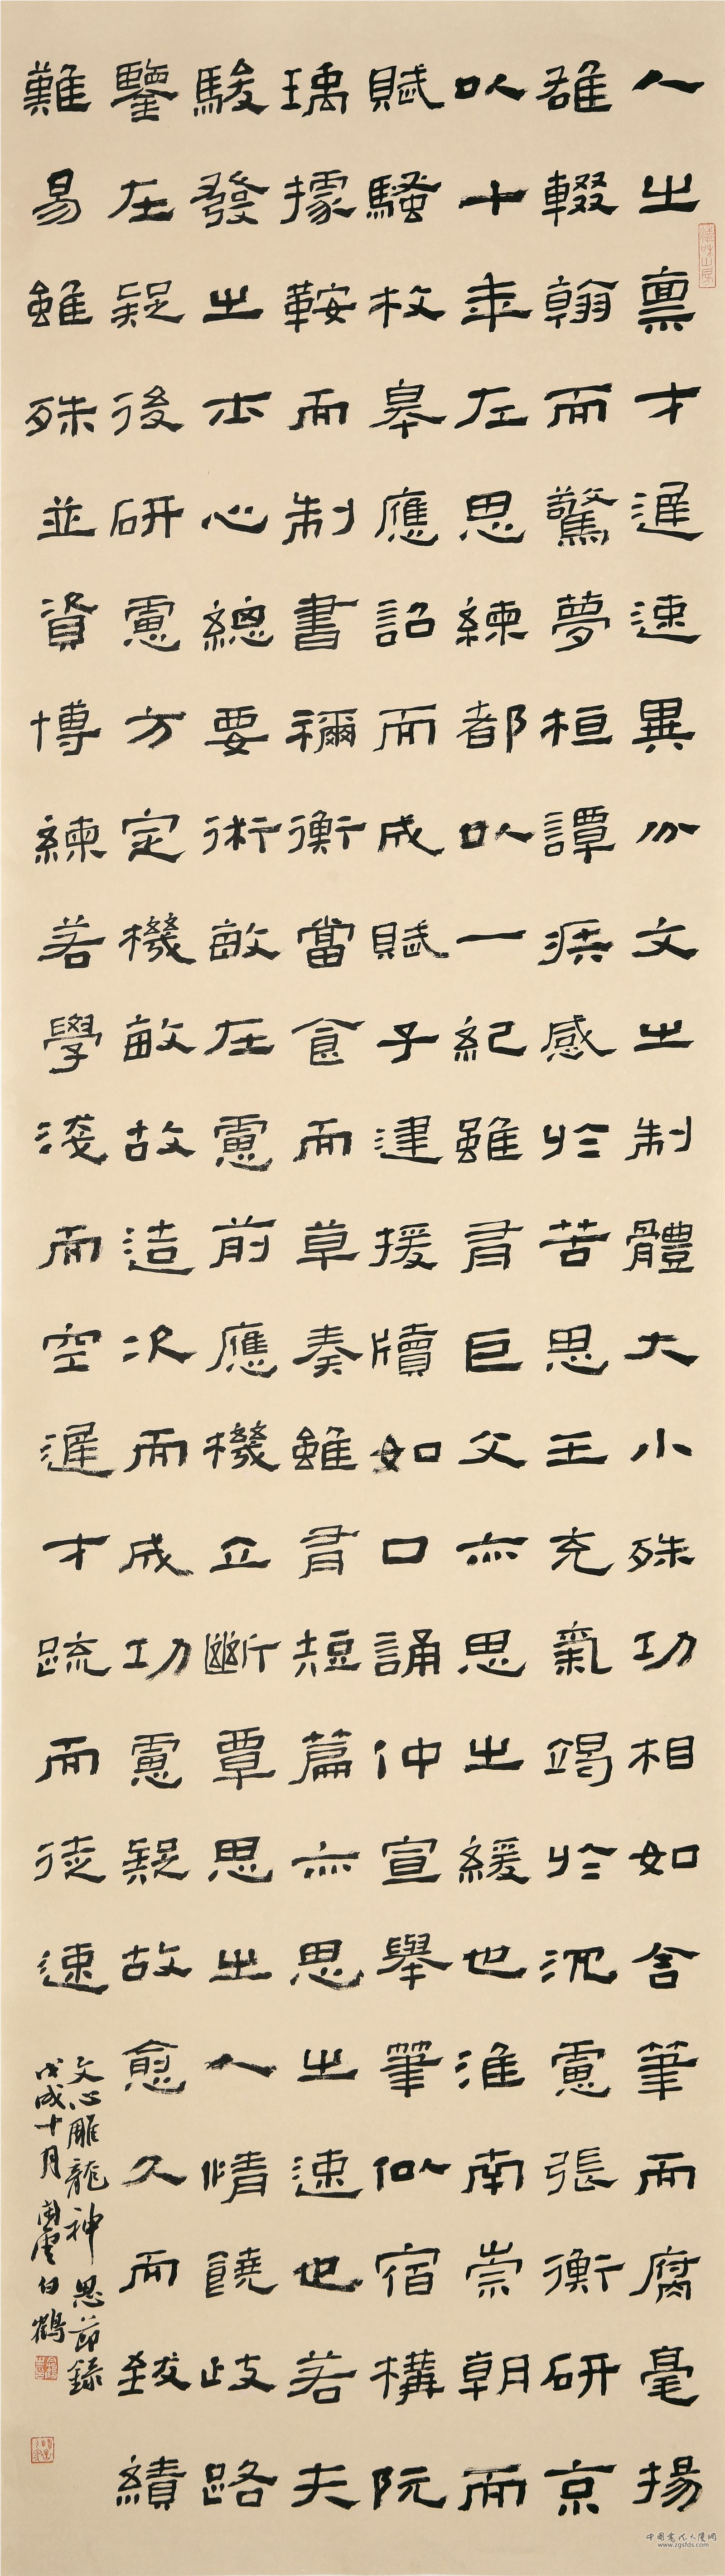 人之禀才遲速異分文之制體大小殊功相如含筆而腐毫揚
雄輟翰而驚夢桓譚疾感於苦思王充氣竭於沉慮張衡研京
以十年左思練都以一紀雖有巨父亦思之緩也淮南崇朝而
賦騷枚皋應詔而成賦子建援牘如口誦仲宣舉筆似宿構阮
瑀據鞍而制書禰衡當食而草奏雖有短篇亦思之速也若夫
駿發之士心總要術敏在慮前應機立斷覃思之人情饒歧路
鑒在疑後研慮方定機敏故造次而成功慮疑故愈久而致績
難易雖殊並資博練若學淺而空遲才疏而徒速
文心雕龍神思節錄
戊戌十月 白鶴
www.zgsfds.com